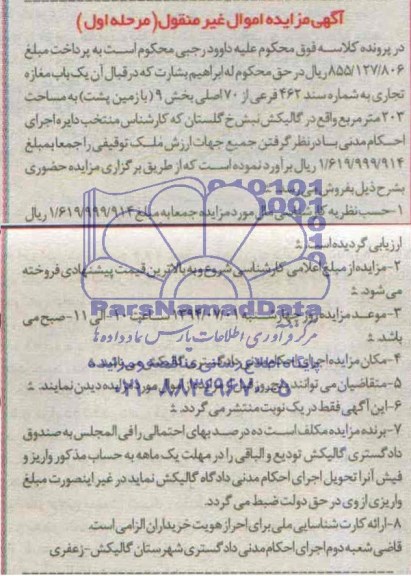 آگهی مزایده اموال غیر منقول(مرحله اول)
در پرونده کلاسه فوق محکوم علیه داوود رجبی محکوم است به پرداخت مبلغ
۸۵۵/۱۲۷/۸۰۶ ریال در حق محکوم له ابراهیم بشارت که در قبال آن یک باب مغازه
تجاری به شماره سند ۴۶۲ فرعی از ۷۰ اصلی بخش ۹ (با زمین پشت) به مساحت
۲۰۳ متر مربع واقع در گالیکش نبش خ گلستان که کارشناس منتخب دایره اجرای
احکام مدنی با در نظر گرفتن جمیع جهات ارزش ملک توقیفی را جمعا بمبلغ
۱/۶۱۹/۹۹۹/۹۱۴ ریال برآورد نموده است که از طریق برگزاری مزایده حضوری
بشرح ذیل بفروش می رسد
۱-حسب نظریه کارشناسی مال مورد مزایده جمعا به مبلغ ۱/۶۱۹/۹۹۹/۹۱۴ ریال
ارزیابی گردیده است.
۲-مزایده از مبلغ اعلامی کارشناسی شروع و به بالاترین قیمت پیشنهادی فروخته
می شود.
۳-موعد مزایده روز شنبه ۱۳۹۴/۰۷/۰۱ ساعت ۱۰ الی ۱۱-صبح می
باشد
۴-مکان مزایده اجرای احکام مدنی دادگستری گالیکش می باشد
۵-متقاضیان می توانند پنج روز قبل از مزایده از اموال مورد مزایده دیدن نمایند.
۶-این آگهی فقط در یک نوبت منتشر می گردد.
۷-برنده مزایده مکلف است ده درصد بهای احتمالی را فی المجلس به صندوق
دادگستری گالیکش تودیع و الباقی را در مهلت یک ماهه به حساب مذکور واریز و
فیش آنرا تحویل اجرای احکام مدنی دادگاه گالیکش نماید در غیر اینصورت مبلغ
واریزی از وی در حق دولت ضبط می گردد.
۸-ارائه کارت شناسایی ملی برای احراز هویت خریداران الزامی است.
قاضی شعبه دوم اجرای احکام مدنی دادگستری شهرستان گالیکش-زعفری
ParsNamadData
مرکز فرآوری اطلاعات پارس نماد داده ها
پایگاه اطلاع رسانی مناقصه و مزایده
۰۲۱-۸۸۳۴۹۶۷۰-۵